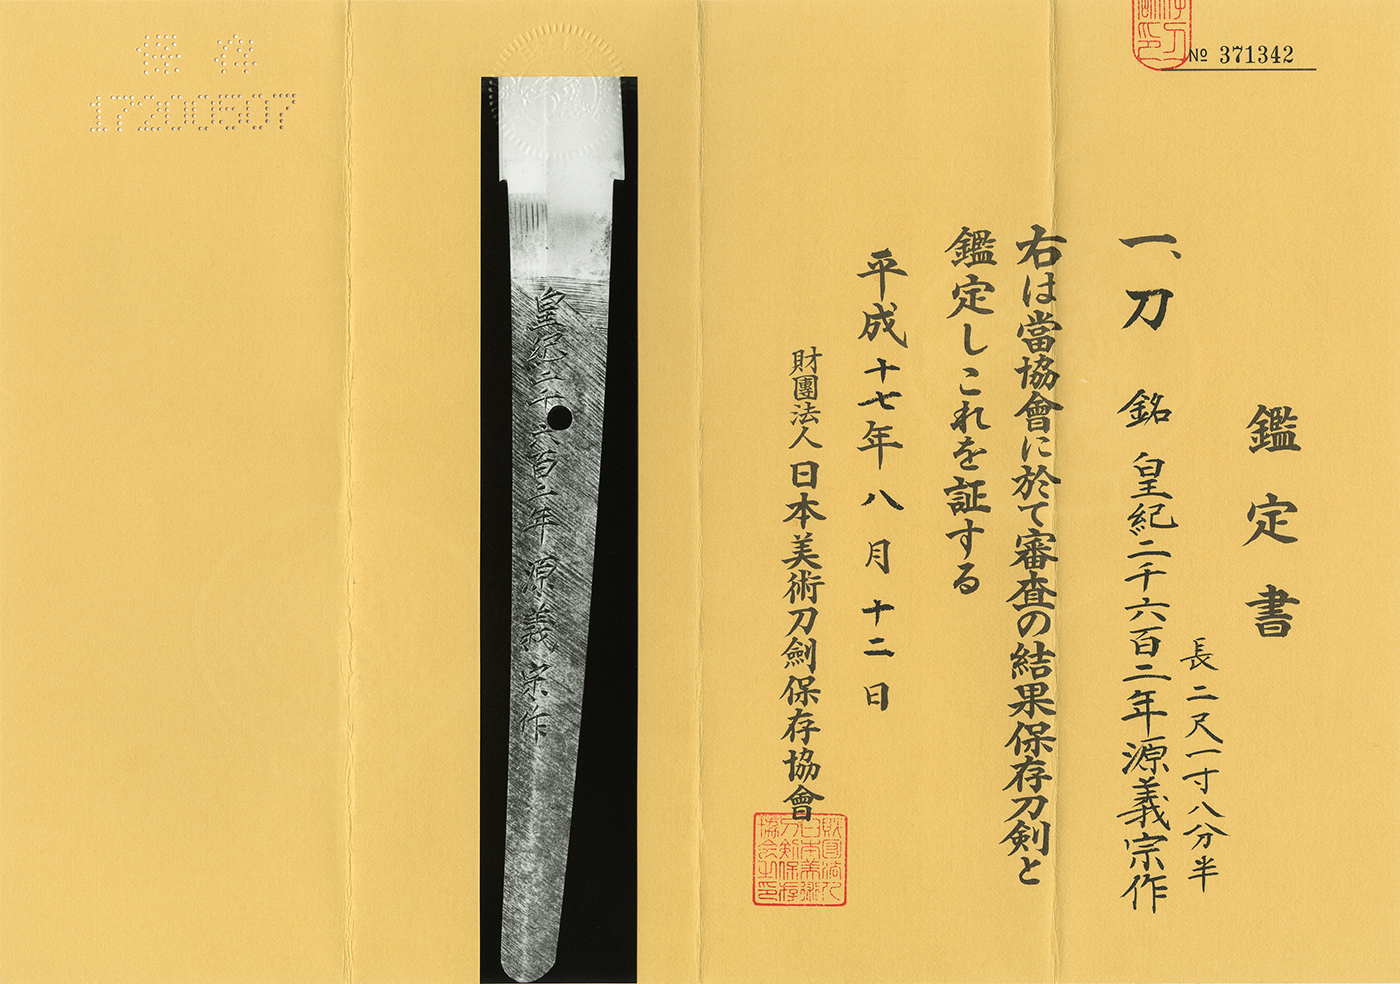 № 371342
鑑定書
一、刀 銘 皇紀二千六百二年源義宗作
長二尺一寸八分半
右は當協會に於て審査の結果保存刀剣と
鑑定しこれを証する
平成十七年八月十二日
財團法人日本美術刀劍保存協會
財団法人
日本美術
刀剣保存
協会之印
皇紀二千六百二年源義宗作
保存
17200507